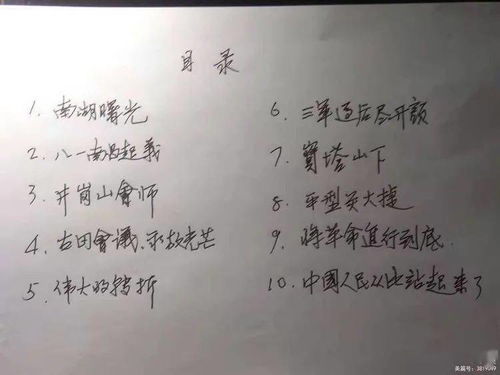 目录
1. 南湖曙光
2. 八一南昌起義
3. 井岗山會师
4. 古田會議永放光芒
5. 伟大的转折
6. 三军过后尽开颜
7. 寳塔山下
8. 平型关大捷
9. 将革命進行到底
10. 中國人民从此站起来了
美篇号：3819049